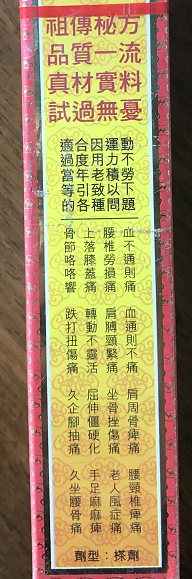 祖傳秘方
品質一流
真材實料
試過無憂
適合因運動
過度用力不
當年老積勞
等引致以下
的各種問題
血不通則痛
腰椎勞損痛
上落膝蓋痛
骨節咯咯響
血通則不痛
肩膊頸緊痛
轉動不靈活
跌打扭傷痛
肩周骨痺痛
坐骨挫傷痛
屈伸僵硬化
久企腳抽痛
腰頸椎痺痛
老人風症痛
手足麻麻痺
久坐腰骨痛
劑型：搽劑